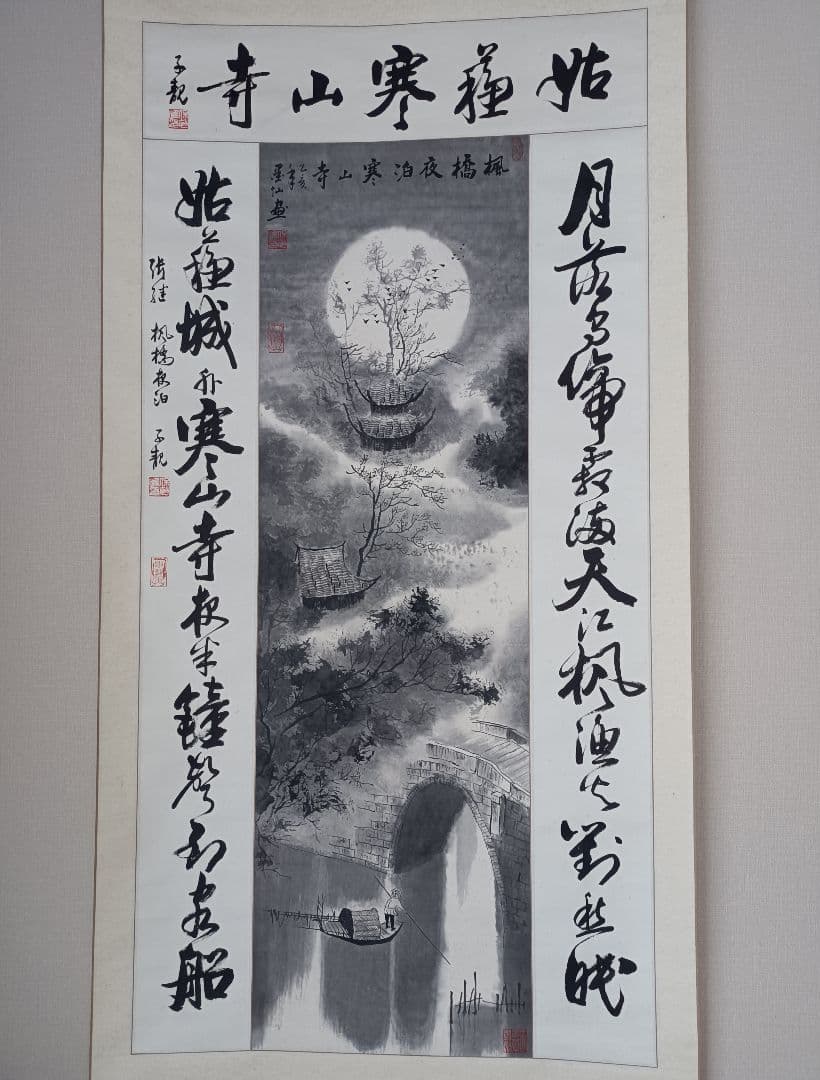 姑蘇寒山寺
月落烏啼霜滿天江枫漁火對愁眠
楓橋夜泊寒山寺
乙亥年
墨仙畫
姑蘇城外寒山寺夜半鐘聲到客船
張継 枫橋夜泊